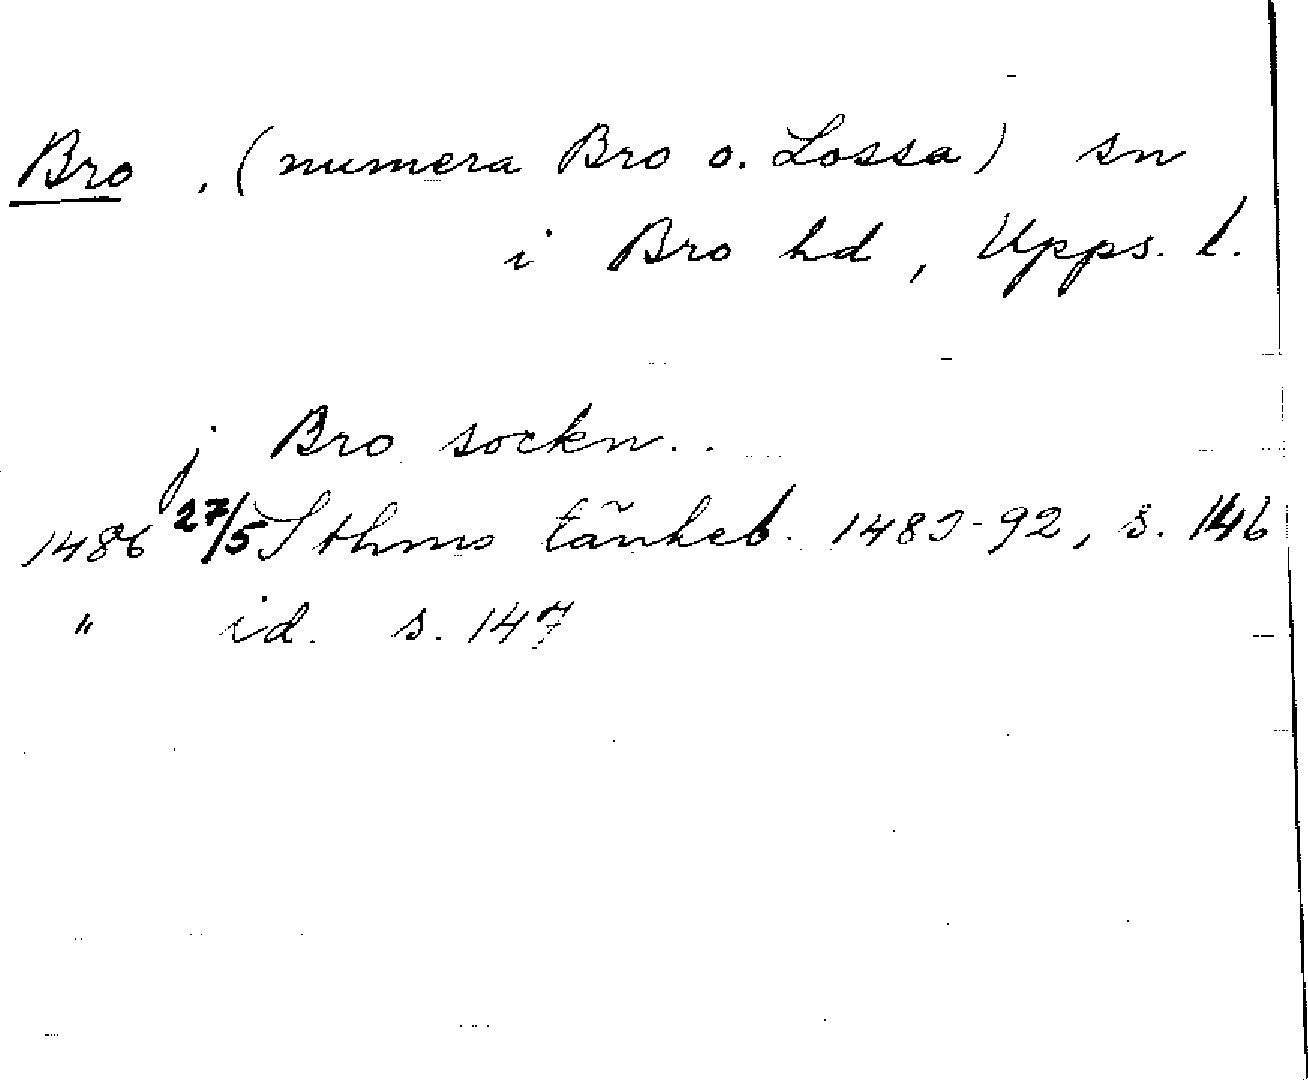 Bro , (numera Bro o. Lossa) sn
i Bro hd, Upps. l.
j Bro sockn..
1486 27/5 Sthms tänkeb. 1483-92, s. 146
" id. s. 147